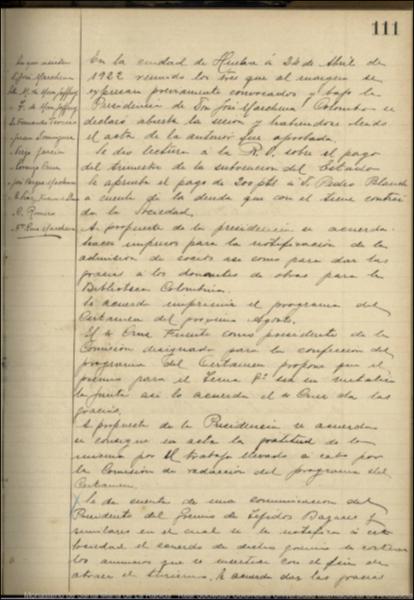 111
José Marchena
F. de Mon
Fernando
Juan Dominguez
García
Cruz
José Marchena
Romero
Marchena
En la ciudad de Huelva á 24 de Abril de
1922 reunido los Sres que al margen se
expresan previamente convocados y bajo la
Presidencia de Don José Marchena Colombo se
declaró abierta la sesion y habiendose leido
el acta de la anterior fue aprobada.
Se dio lectura á la R.O. sobre el pago
del trimestre de la subvencion del Estado
Se aprueba el pago de 200 pts á D. Pedro Blanch
a cuenta de la deuda que con el tiene contrai
da la Sociedad.
A propuesta de la presidencia se acuerda
hacer impresos para la notificación de la
admision de socios asi como para dar las
gracias a los donantes de obras para la
Biblioteca Colombina.
Se acuerda imprimir el programa del
Certamen del proximo Agosto.
El Sr Cruz Fuente como presidente de la
Comisión designada para la confeccion del
programa del Certamen propone que el
premio para el Tema 1º sea en metalico
la Junta asi lo acuerda el Sr Cruz da las
gracias.
A propuesta de la Presidencia se acuerda
se consigne en acta la gratitud de la
misma por el trabajo llevado á cabo por
la Comisión de redacción del programa del
Certamen.
Se da cuenta de una comunicacion del
Presidente del Gremio de Tejidos Bazares y
similares en el cual se le notifica á esta
Sociedad el acuerdo de dicho gremio de costear
los anuncios que se insertan con el fin de
atraer el turismo. Se acuerda dar las gracias